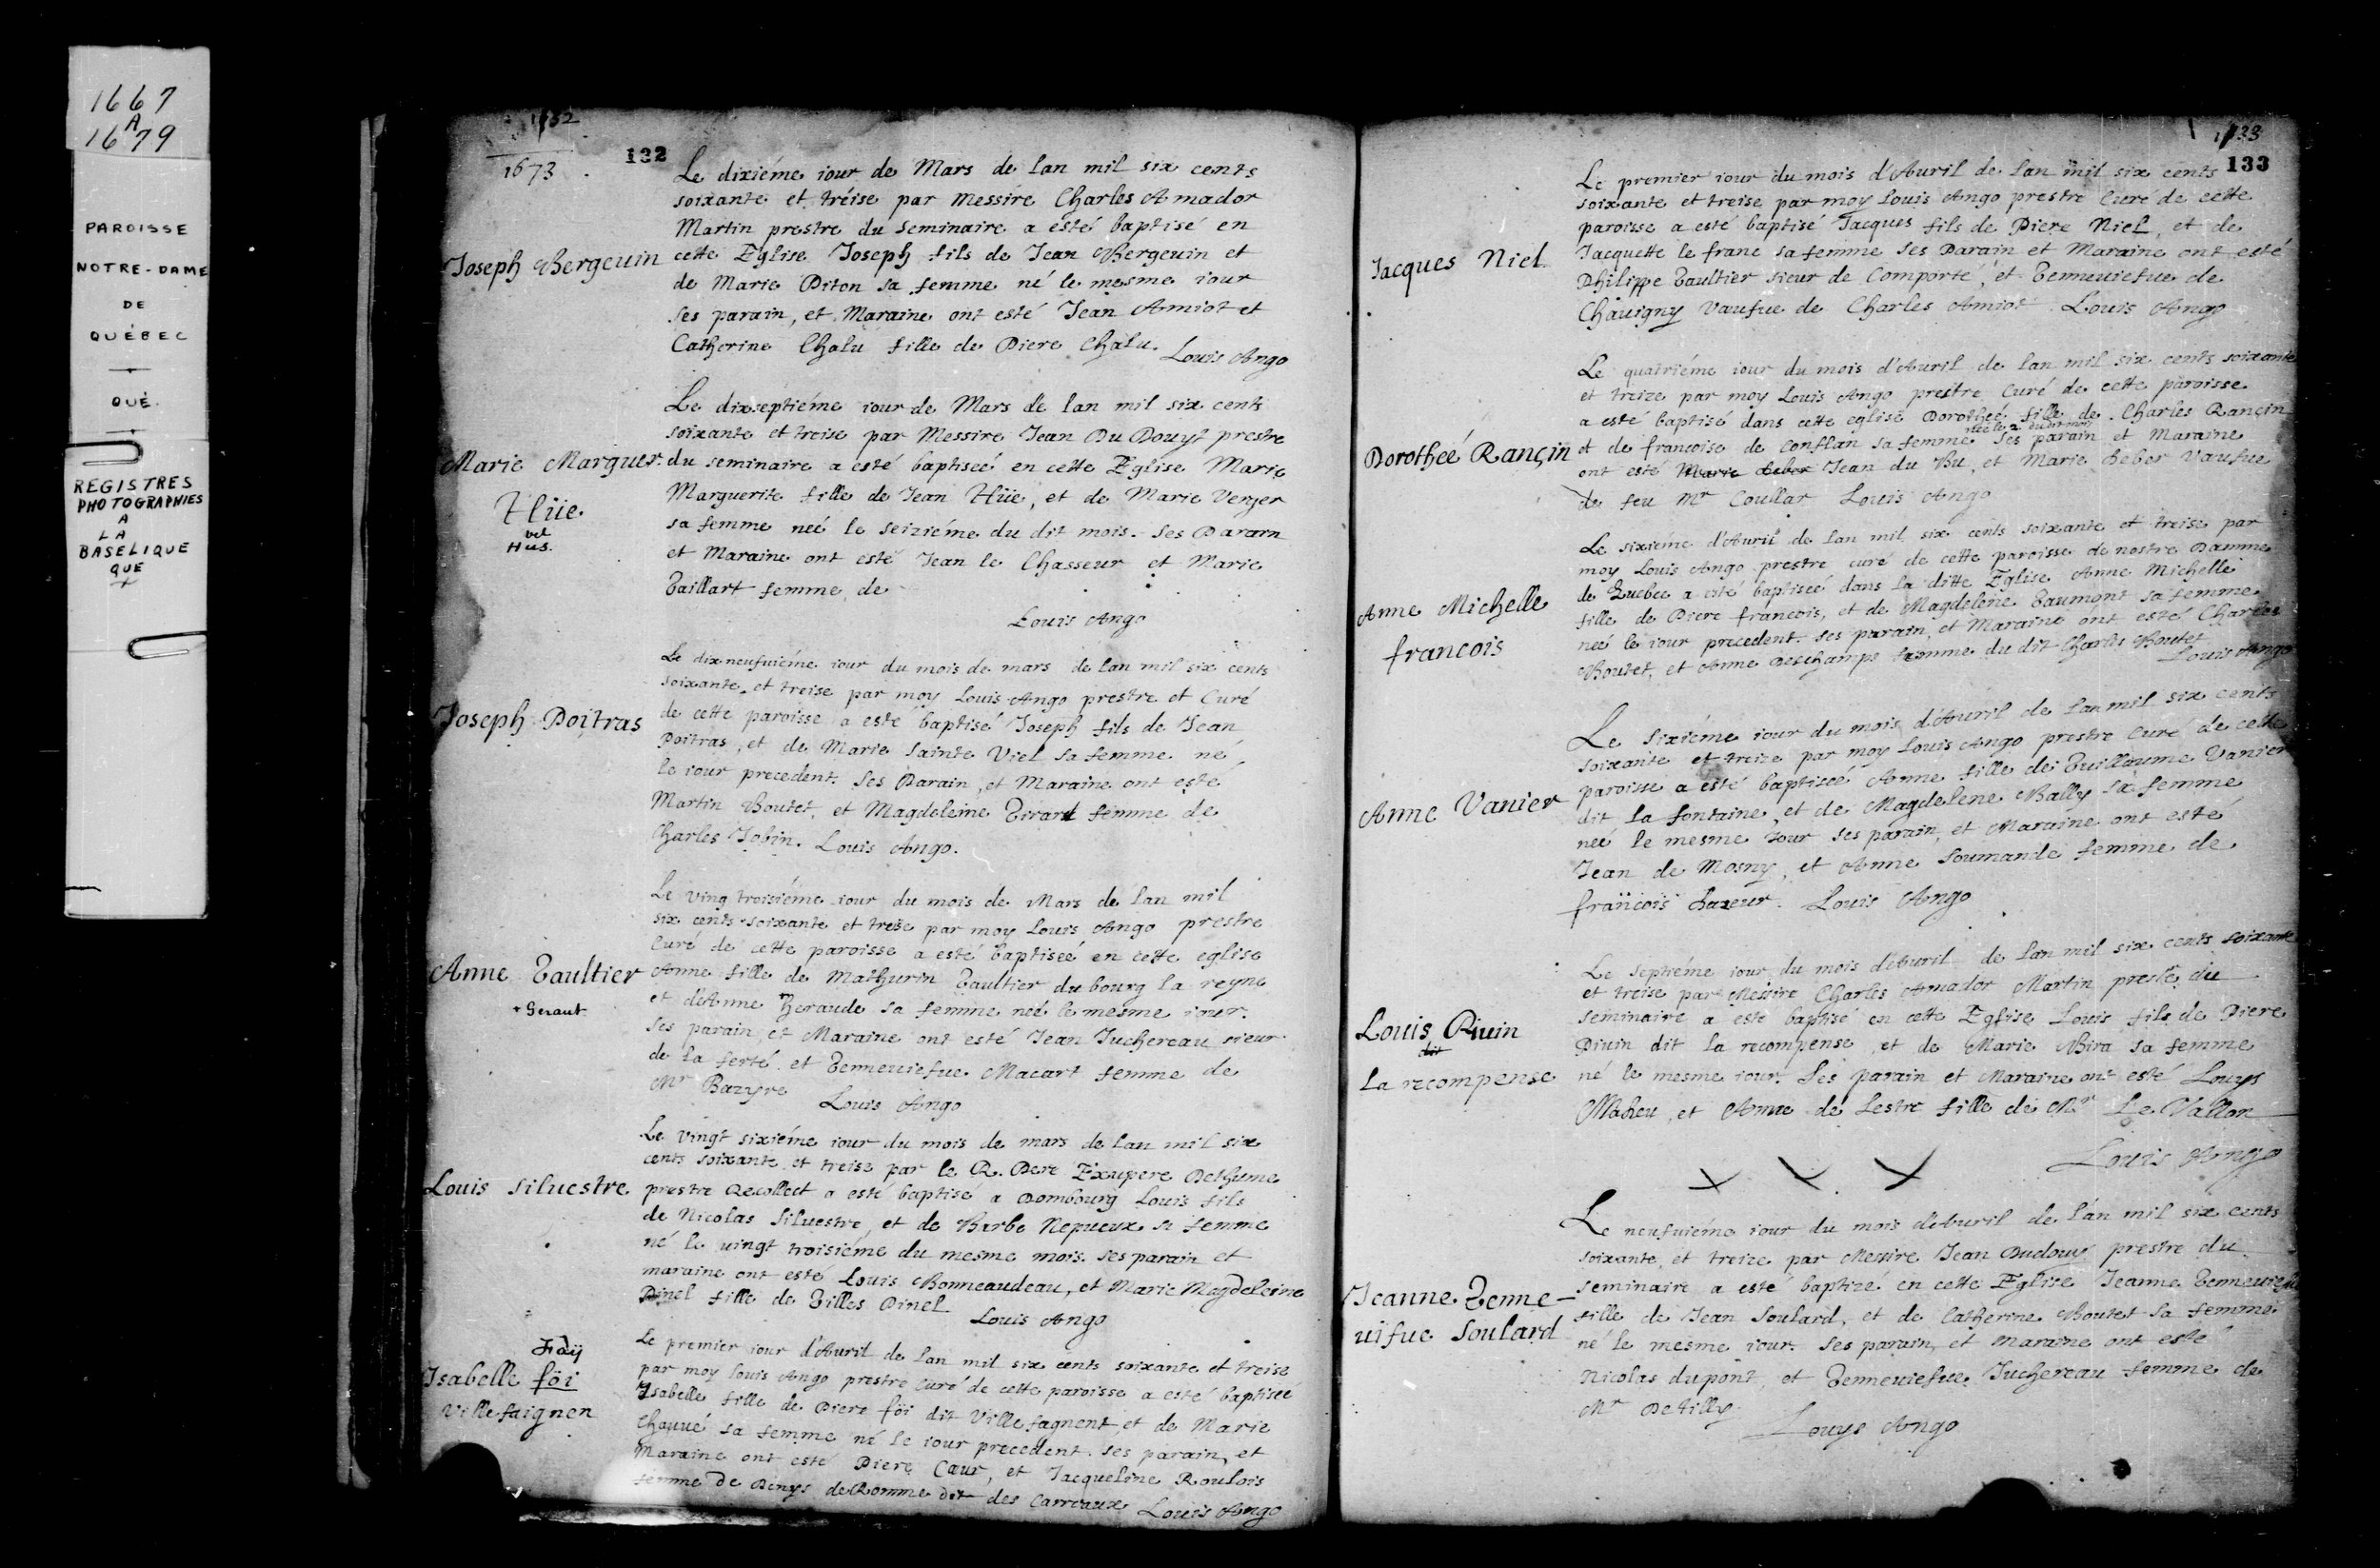 1667
A
1679
PAROISSE
NOTRE-DAME
DE
QUÉBEC
QUÉ.
REGISTRES
PHOTOGRAPHIES
A
LA
BASELIQUE
QUE
132
1673
132
Le dixiéme iour de Mars de lan mil six cents
soixante et tréise par Messire Charles Amador
Martin prestre du seminaire a esté baptisé en
Joseph Bergeuin cette Eglise Joseph fils de Jean Bergeuin et
de Marie Piton sa femme né le mesme iour
ses parain, et Maraine ont esté Jean Amiot et
Catherine Chalu fille de Piere Chalu. Louis Ango
Le dixseptiéme iour de Mars de lan mil six cents
soixante et treise par Messire Jean Du Douyt prestre
Marie Marguer. du seminaire a esté baptiseé en cette Eglise Marie
Marguerite fille de Jean Hüe, et de Marie Verger
Hüe.
vel
Hus.
sa femme neé le seiziéme du dit mois. Ses Parain
et Maraine ont esté Jean le Chasseur et Marie
Gaillart femme de
Louis Ango
Le dix neufuiéme iour du mois de mars de lan mil six cents
soixante et treise par moy Louis Ango prestre et Curé
Joseph Poitras de cette paroisse a esté baptisé Joseph fils de Jean
Poitras, et de Marie Sainte Viel sa femme né
le iour precedent. Ses Parain, et Maraine ont esté
Martin Boutet, et Magdeleine Girard femme de
Charles Jobin. Louis Ango.
Le Ving troisiéme iour du mois de Mars de lan mil
six cents soixante et treise par moy Louis Ango prestre
Curé de cette paroisse a esté baptiseé en cette eglise
Anne Gaultier Anne fille de Mathurin Gaultier du bourg la reyne
+ Geraut. et d'Anne Geraude sa femme neé le mesme iour.
Ses parain, et Maraine ont esté Jean Juchereau sieur
de la ferté. et Genneuiefue Macart femme de
Mr Bazyre Louis Ango
Le Vingt sixiéme iour du mois de mars de lan mil six
cents soixante et treise par le R. Pere Exupere Dethune
Louis Siluestre prestre Recollect a esté baptise a Dombourg Louis fils
de Nicolas Siluestre, et de Barbe Nepueux sa femme
né le uingt troisiéme du mesme mois. Ses parain et
maraine ont esté Louis Bonneaudeau, et Marie Magdeleine
Pinel fille de Gilles Pinel Louis Ango
Le premier iour d'Auril de lan mil six cents soixante et treise
Faÿ
Isabelle föi
Villefaignen
par moy Louis Ango prestre Curé de cette paroisse a esté baptiseé
Isabelle fille de Piere föi dit Ville fagnent, et de Marie
Chauué sa femme né le iour precedent. ses parain, et
Maraine ont esté Piere Cœur, et Jacqueline Roulois
femme de Denys deRomme dit des Carreaux Louis Ango
133
133
Le premier iour du mois d'Auril de lan mil six cents
soixante et treise par moy Louis Ango prestre Curé de cette
paroisse a esté baptisé Jacques fils de Piere Niel, et de
Jacques Niel Jacquette le franc sa femme Ses Parain et Maraine ont esté
Philippe Gaultier sieur de Comporté, et Genneuiefue de
Chauigny Vaufue de Charles Amiot. Louis Ango
Le quatriéme iour du mois d'Auril de lan mil six cents soixante
et treize par moy Louis Ango prestre Curé de cette paroisse
a esté baptisé dans cette eglise Dorotheé fille de Charles Rançin
neé le 2 du dit mois
Dorotheé Rançin et de francoise de Conflan sa femme Ses parain et Maraine
ont esté Marie heber Jean du Bu, et Marie heber Vaufue
de feu Mr Coullar Louis Ango
Le sixiéme d'Auril de lan mil six cents soixante et treise par
moy Louis Ango prestre curé de cette paroisse de nostre Damme
de Quebec a esté baptiseé dans la ditte Eglise Anne Michelle
Anne Michelle
francois
fille de Piere francois, et de Magdelene Gaumont sa femme
neé le iour precedent. Ses parain, et Maraine ont esté Charles
Boutet, et Anne Deschamps femme du dit Charles Boutet
Louis Ango
Le Sixiéme iour du mois d'Auril de lan mil six cents
soixante et treize par moy Louis Ango prestre Curé de cette
paroisse a esté baptiseé Anne fille de Guillaume Vanier
Anne Vanier dit la fontaine, et de Magdelene Bally sa femme
neé le mesme iour ses parain, et Maraine ont esté
Jean de Mosny, et Anne Soumande femme de
françois hazeur. Louis Ango
Le Septiéme iour du mois d'Auril de lan mil six cents soixante
et treise par Messire Charles Amador Martin prestre du
seminaire a esté baptisé en cette Eglise Louis fils de Piere
Louis Piuin
dit
La recompense
Piuin dit la recompense et de Marie Bira sa femme
né le mesme iour. Ses parain et Maraine ont esté Louys
Maheu, et Anne de Lestre fille de Mr Le Vallon
Louis Ango
Le neufuiéme iour du mois d'Auril de l'an mil six cents
soixante, et treize par Messire Jean Dudouy prestre du
seminaire a esté baptizé en cette Eglise Jeanne Genneuiefue
Jeanne Genne-
uifue Soulard
fille de Jean Soulard, et de Catherine Boutet sa femme
né le mesme iour. Ses parain, et Maraine ont esté
Nicolas dupont et Genneuiefue Juchereau femme de
Mr De tilly. Louys Ango